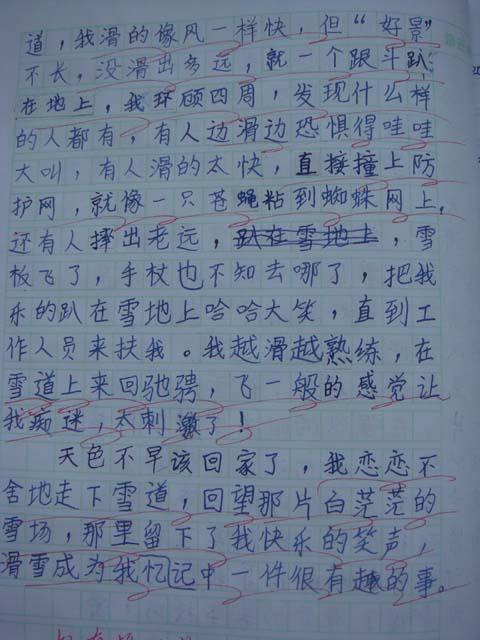 道，我滑的像风一样快，但“好景”
不长，没滑出多远，就一个跟斗趴
在地上，我环顾四周，发现什么样
的人都有，有人边滑边恐惧得哇哇
大叫，有人滑的太快，直接撞上防
护网，就像一只苍蝇粘到蜘蛛网上，
还有人摔出老远，趴在雪地上，雪
板飞了，手杖也不知去哪了，把我
乐的趴在雪地上哈哈大笑，直到工
作人员来扶我。我越滑越熟练，在
雪道上来回驰骋，飞一般的感觉让
我痴迷，太刺激了！
天色不早该回家了，我恋恋不
舍地走下雪道，回望那片白茫茫的
雪场，那里留下了我快乐的笑声，
滑雪成为我忆记中一件很有趣的事。